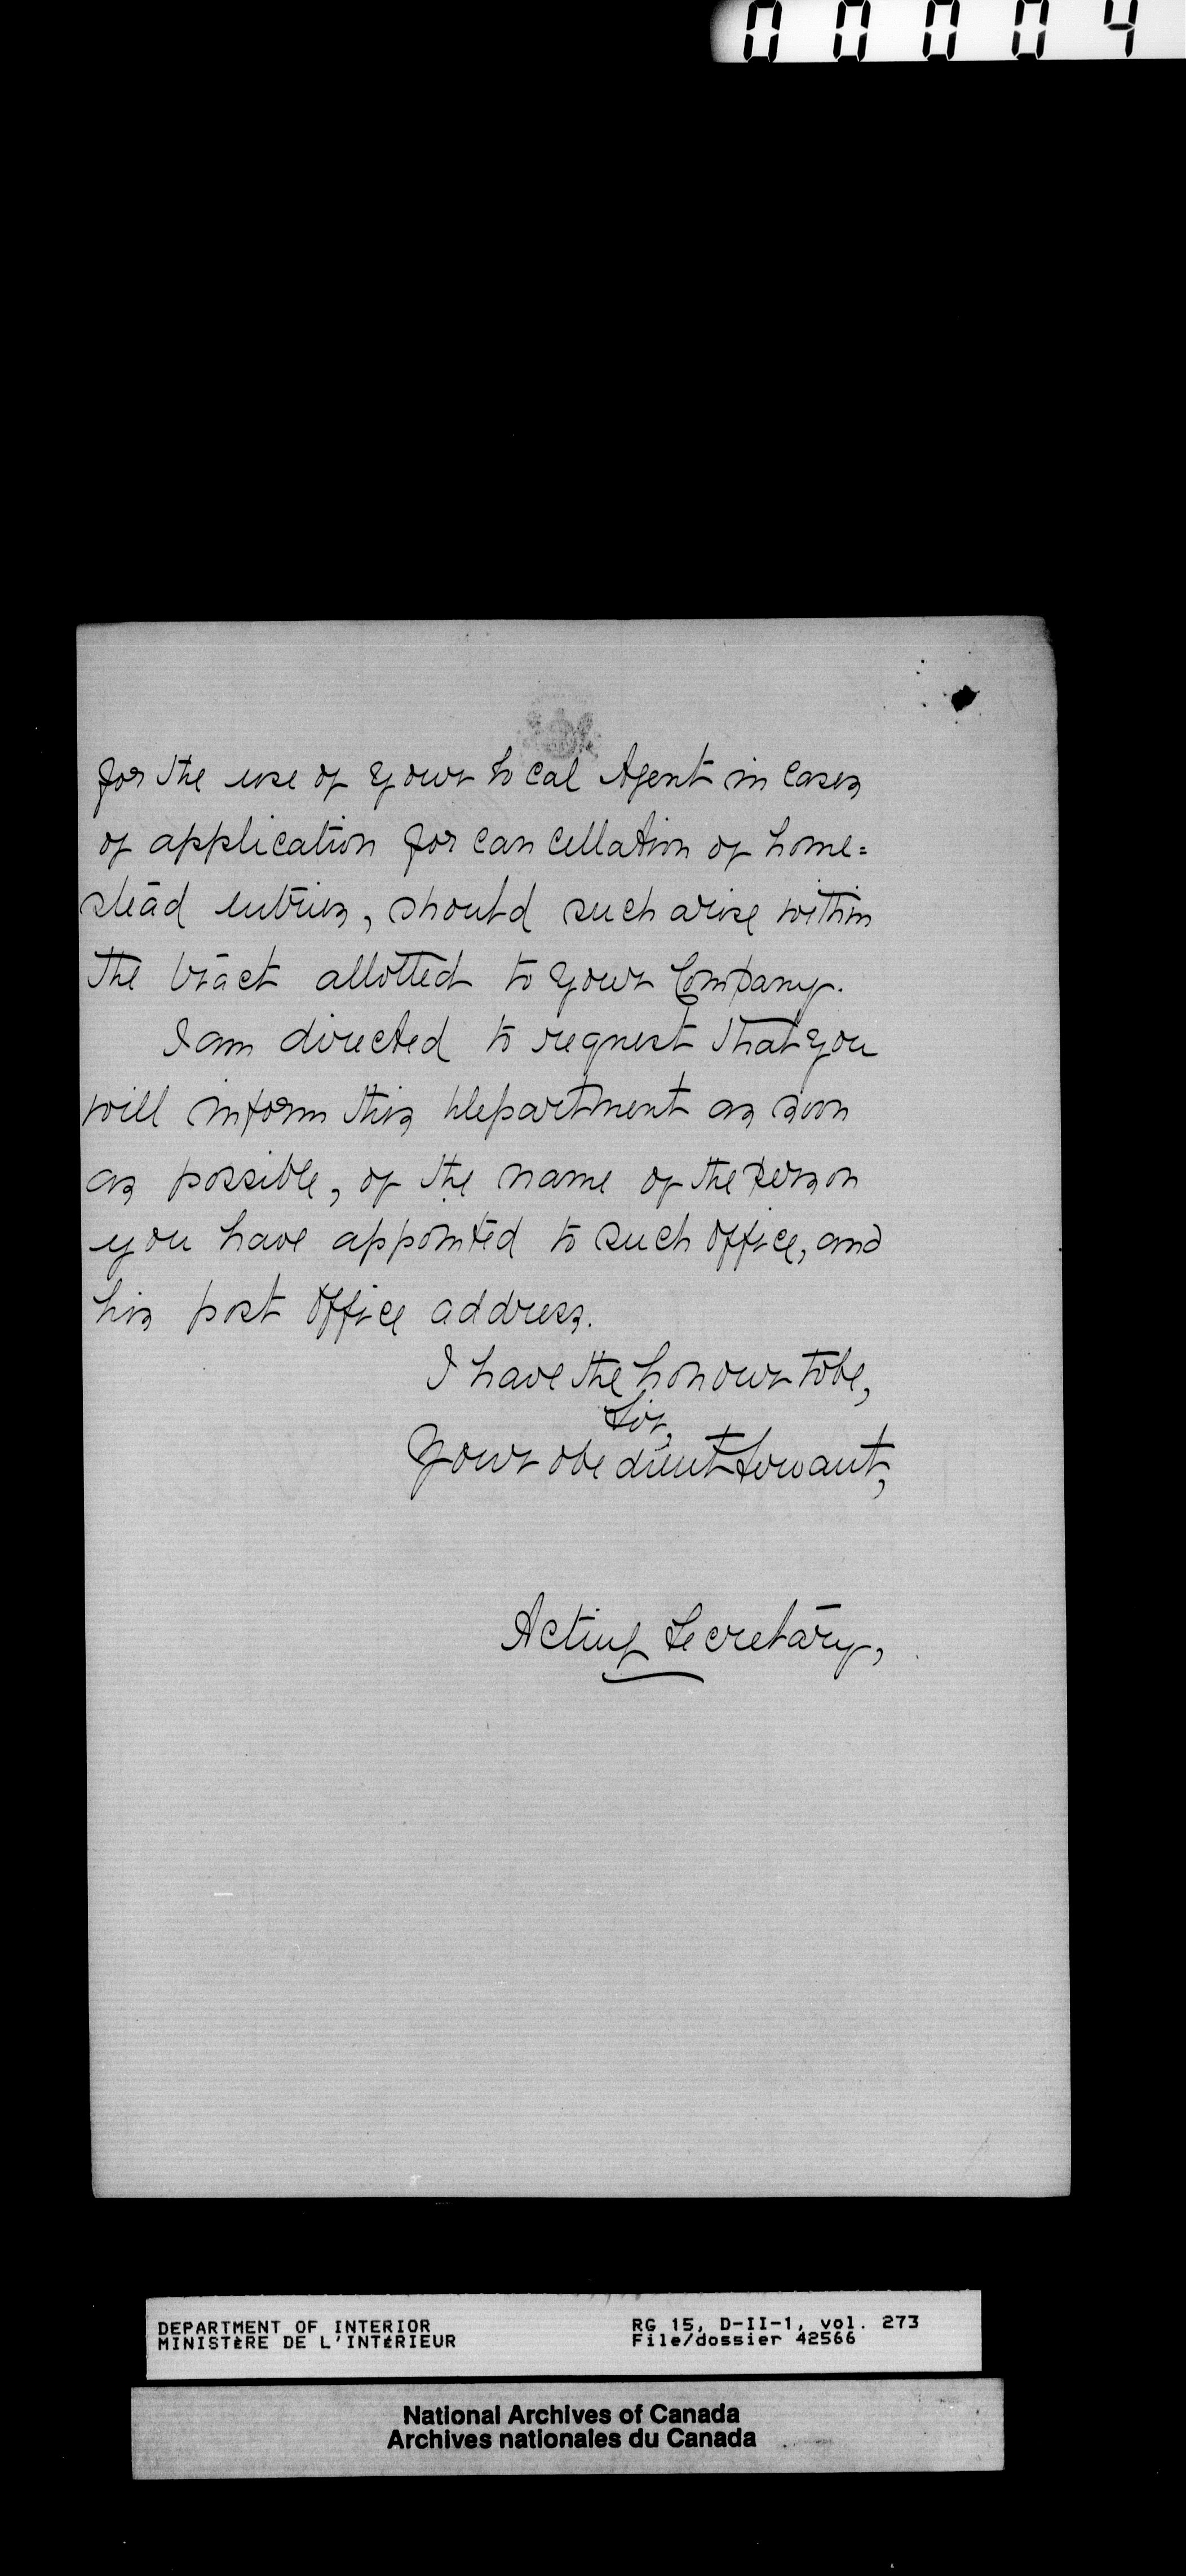 00004
for the use of your local Agent in cases
of application for cancellation of home=
stead entries, should such arise within
the tract allotted to your Company.
I am directed to request that you
will inform this Department as soon
as possible, of the name of the person
you have appointed to such office, and
his post office address.
I have the honour to be,
Sir,
Your obedient Servant,
Acting Secretary,
DEPARTMENT OF INTERIOR
MINISTÈRE DE L'INTÉRIEUR
RG 15, D-II-1, vol. 273
File/dossier 42566
National Archives of Canada
Archives nationales du Canada